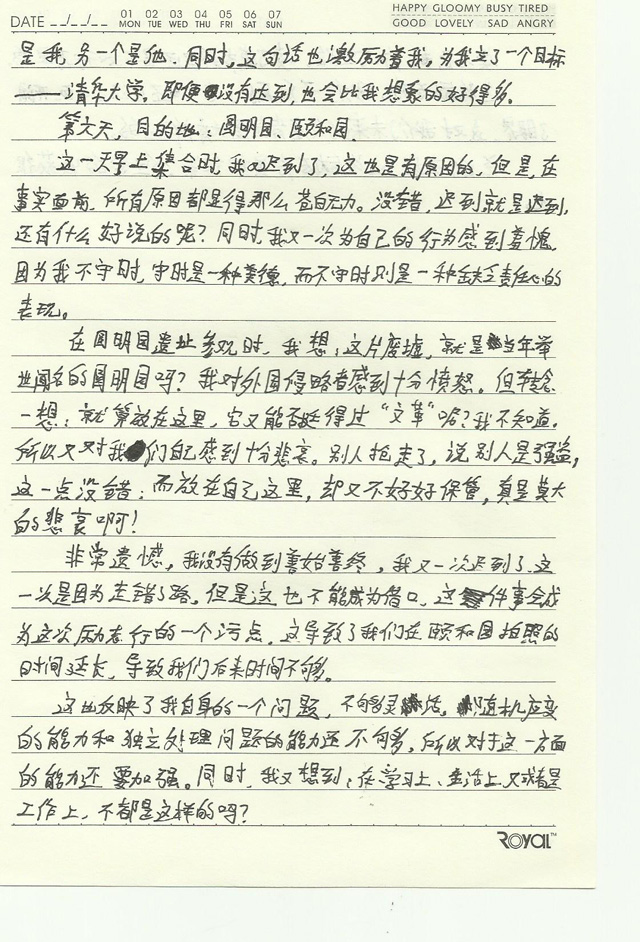 DATE __/__/__
01 02 03 04 05 06 07
MON TUE WED THU FRI SAT SUN
HAPPY GLOOMY BUSY TIRED
GOOD LOVELY SAD ANGRY
是我另一个是他。同时,这句话也激励着我,为我立了一个目标
——清华大学。即便没有达到,也会比我想象的好得多。
第六天,目的地:圆明园、颐和园。
这一天早上集合时,我迟到了,这也是有原因的,但是,在
事实面前,所有原因都显得那么苍白无力。没错,迟到就是迟到,
还有什么好说的呢?同时,我又一次为自己的行为感到羞愧,
因为我不守时,守时是一种美德,而不守时则是一种缺乏责任心的
表现。
在圆明园遗址参观时,我想:这片废墟,就是当年举
世闻名的圆明园吗?我对外国侵略者感到十分愤怒。但转念
一想:就算放在这里,它又能否挺得过“文革”呢?我不知道。
所以又对我们自己感到十分悲哀。别人抢走了,说别人是强盗,
这一点没错;而放在自己这里,却又不好好保管,真是莫大
的悲哀啊!
非常遗憾,我没有做到善始善终,我又一次迟到了。这
一次是因为走错了路,但是这也不能成为借口,这件事会成
为这次励志行的一个污点,这导致了我们在颐和园拍照的
时间延长,导致我们后来时间不够。
这也反映了我自身的一个问题,不够灵活,随机应变
的能力和独立处理问题的能力还不够,所以对于这一方面
的能力还要加强。同时,我又想到:在学习上、生活上又或者是
工作上,不都是这样的吗?
ROYAL™